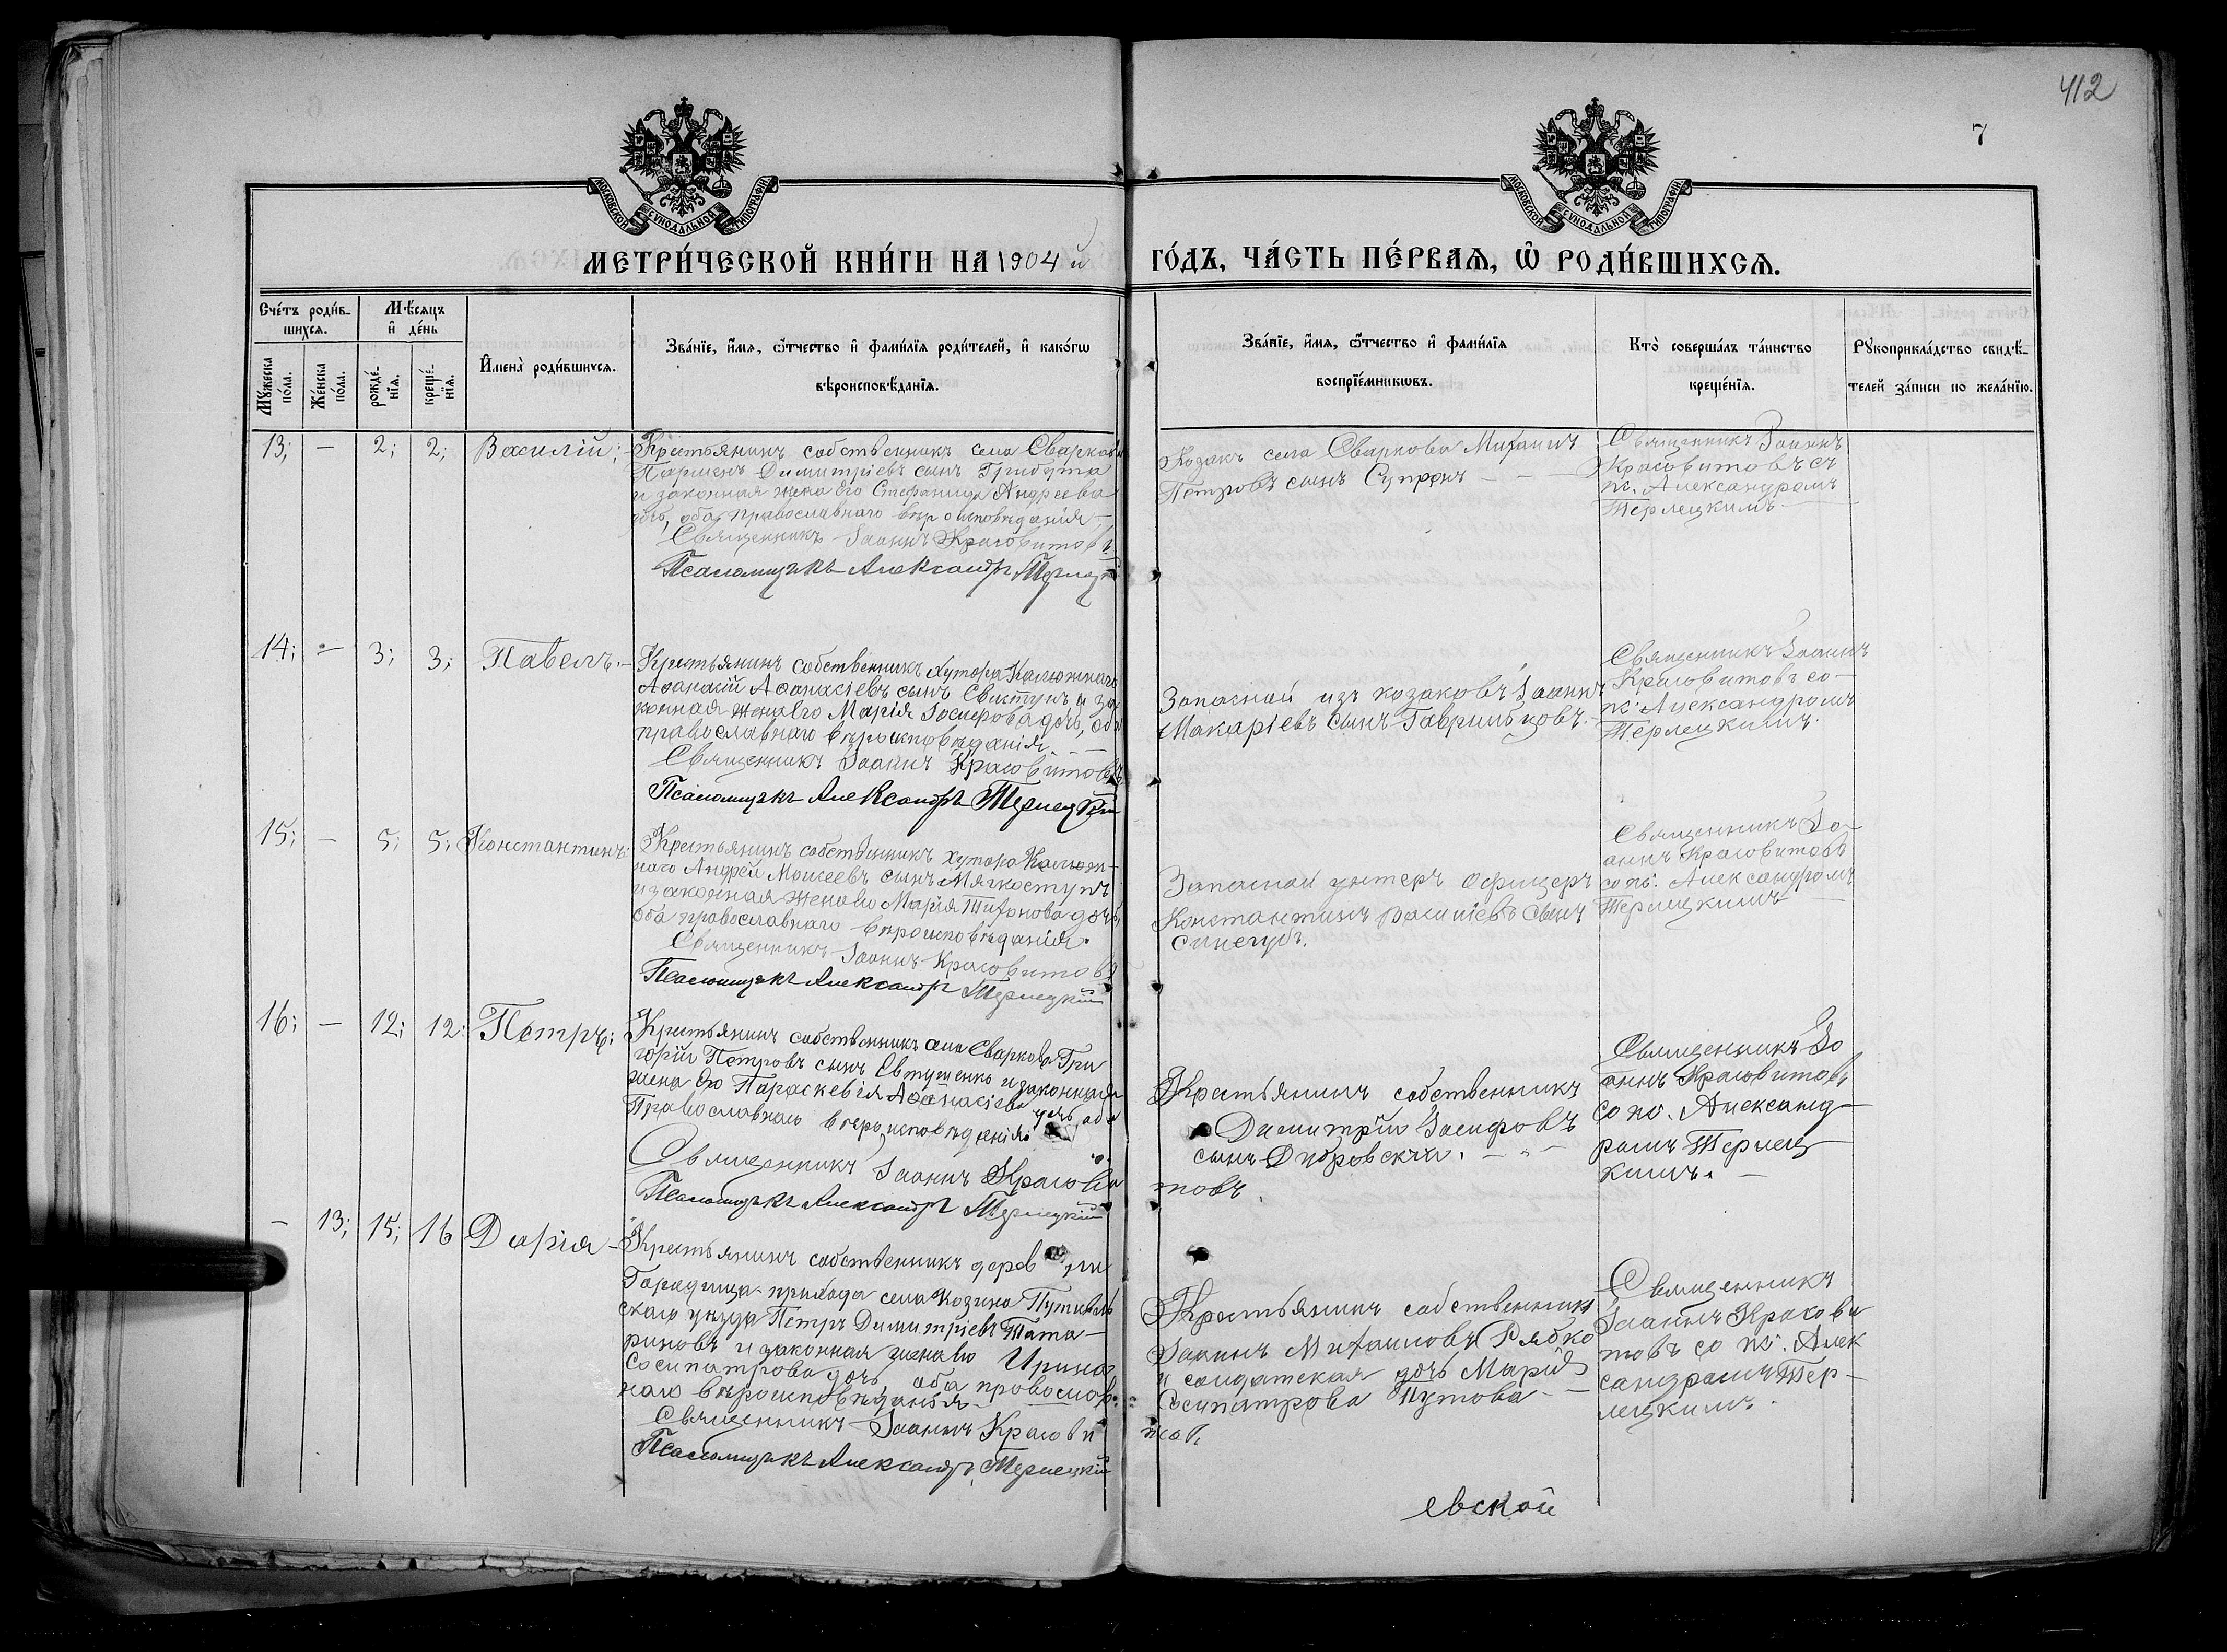 412
7
МОСКОВСКОЙ СѴНОДАЛЬНОЙ ТИПОГРАФІИ
МОСКОВСКОЙ СѴНОДАЛЬНОЙ ТИПОГРАФІИ
МЕТРИ́ЧЕСКОЙ КНИ́ГИ НА 1904 й
ГО́ДЪ, ЧА́СТЬ ПЕ́РВАѦ, Ѡ҆ РОДИ́ВШИХСѦ.
Сче́тъ роди́в-
шихсѧ.
Мѣ́сѧцъ
и҆ де́нь
Мꙋ́жеска по́ла.
Же́нска по́ла.
рожде́-нїѧ.
креще́-нїѧ.
И҆мена̀ роди́вшихсѧ.
Зва́нїе, и҆́мѧ, ѻ҆́тчество и҆ фами́лїѧ роди́телей, и҆ како́гѡ
вѣроисповѣ́данїѧ.
Зва́нїе, и҆́мѧ, ѻ҆́тчество и҆ фами́лїѧ
воспрїе́мникѡвъ.
Кто̀ соверша́лъ та́инство
креще́нїѧ.
Рꙋкоприкла́дство свидѣ́-
телей за́писи по жела́нїю.
13; — 2; 2; Василій;
Крестьянинъ собственникъ села Сваркова
Парменъ Димитріевъ сынъ Грибута
и законная жена его Стефанида Андреева
дочь, оба православнаго вѣроисповѣданія
Священникъ Іоаннъ Красовитовъ
Псаломщикъ Александръ Терлецкі
Козакъ села Сваркова Михаилъ
Петровъ сынъ Супрунъ — —
Священникъ Іоаннъ
Красовитовъ съ
пс. Александромъ
Терлецкимъ.
14; — 3; 3; Павелъ. —
Крестьянинъ собственникъ хутора Калюжнаго
Аѳанасій Аѳанасіевъ сынъ Свистунъ и за
конная жена его Марія Іосифова дочь, оба
православнаго вѣроисповѣданія. —
Священникъ Іоаннъ Красовитовъ
Псаломщикъ Александръ Терлецкій
Запасной изъ козаковъ Іоаннъ
Макаріевъ сынъ Гаврильцовъ.
Священникъ Іоаннъ
Красовитовъ со
пс. Александромъ
Терлецкимъ.
15; — 5; 5; Константинъ
Крестьянинъ собственникъ хутора Калюж-
наго Андрей Моисеевъ сынъ Мягкоступъ
и законная жена его Марія Тихонова дочь,
оба православнаго вѣроисповѣданія.
Священникъ Іоаннъ Красовитовъ
Псаломщикъ Александръ Терлецкій
Запасной унтеръ офицеръ
Константинъ сынъ
Синегубъ.
Священникъ Іо-
аннъ Красовитовъ
со пс. Александромъ
Терлецкимъ
16; — 12; 12; Петръ;
Крестьянинъ собственникъ села Сваркова Гри
горій Петровъ сынъ Евтушенко и законная
жена его Параскевія Аѳанасіева дочь, оба
Православнаго вѣроисповѣданія
Священникъ Іоаннъ Красови
товъ.
Псаломщикъ Александръ Терлецкій
Крестьянинъ собственникъ
Димитрій Іосифовъ
сынъ
Священникъ Іо
аннъ Красовитовъ
со пс. Александ-
ромъ Терлец
кимъ. —
— 13; 15; 16 Дарія —
Крестьянинъ собственникъ дерев ни
Городища прихода села Козино Путивль
скаго уѣзда Петръ Димитріевъ Тата-
риновъ и законная жена его Ирина
Сосипатрова дочь, оба православ-
наго вѣроисповѣданія
Священникъ Іоаннъ Красови
тов.
Псаломщикъ Александръ Терлецкій
Крестьянинъ собственникъ
Іоаннъ Михаиловъ Рябко
и солдатская дочь Марія
Сосипатрова Путова —
Священникъ
Іоаннъ Красови
товъ со пс. Алек
сандромъ Тер-
лецкимъ.
евской